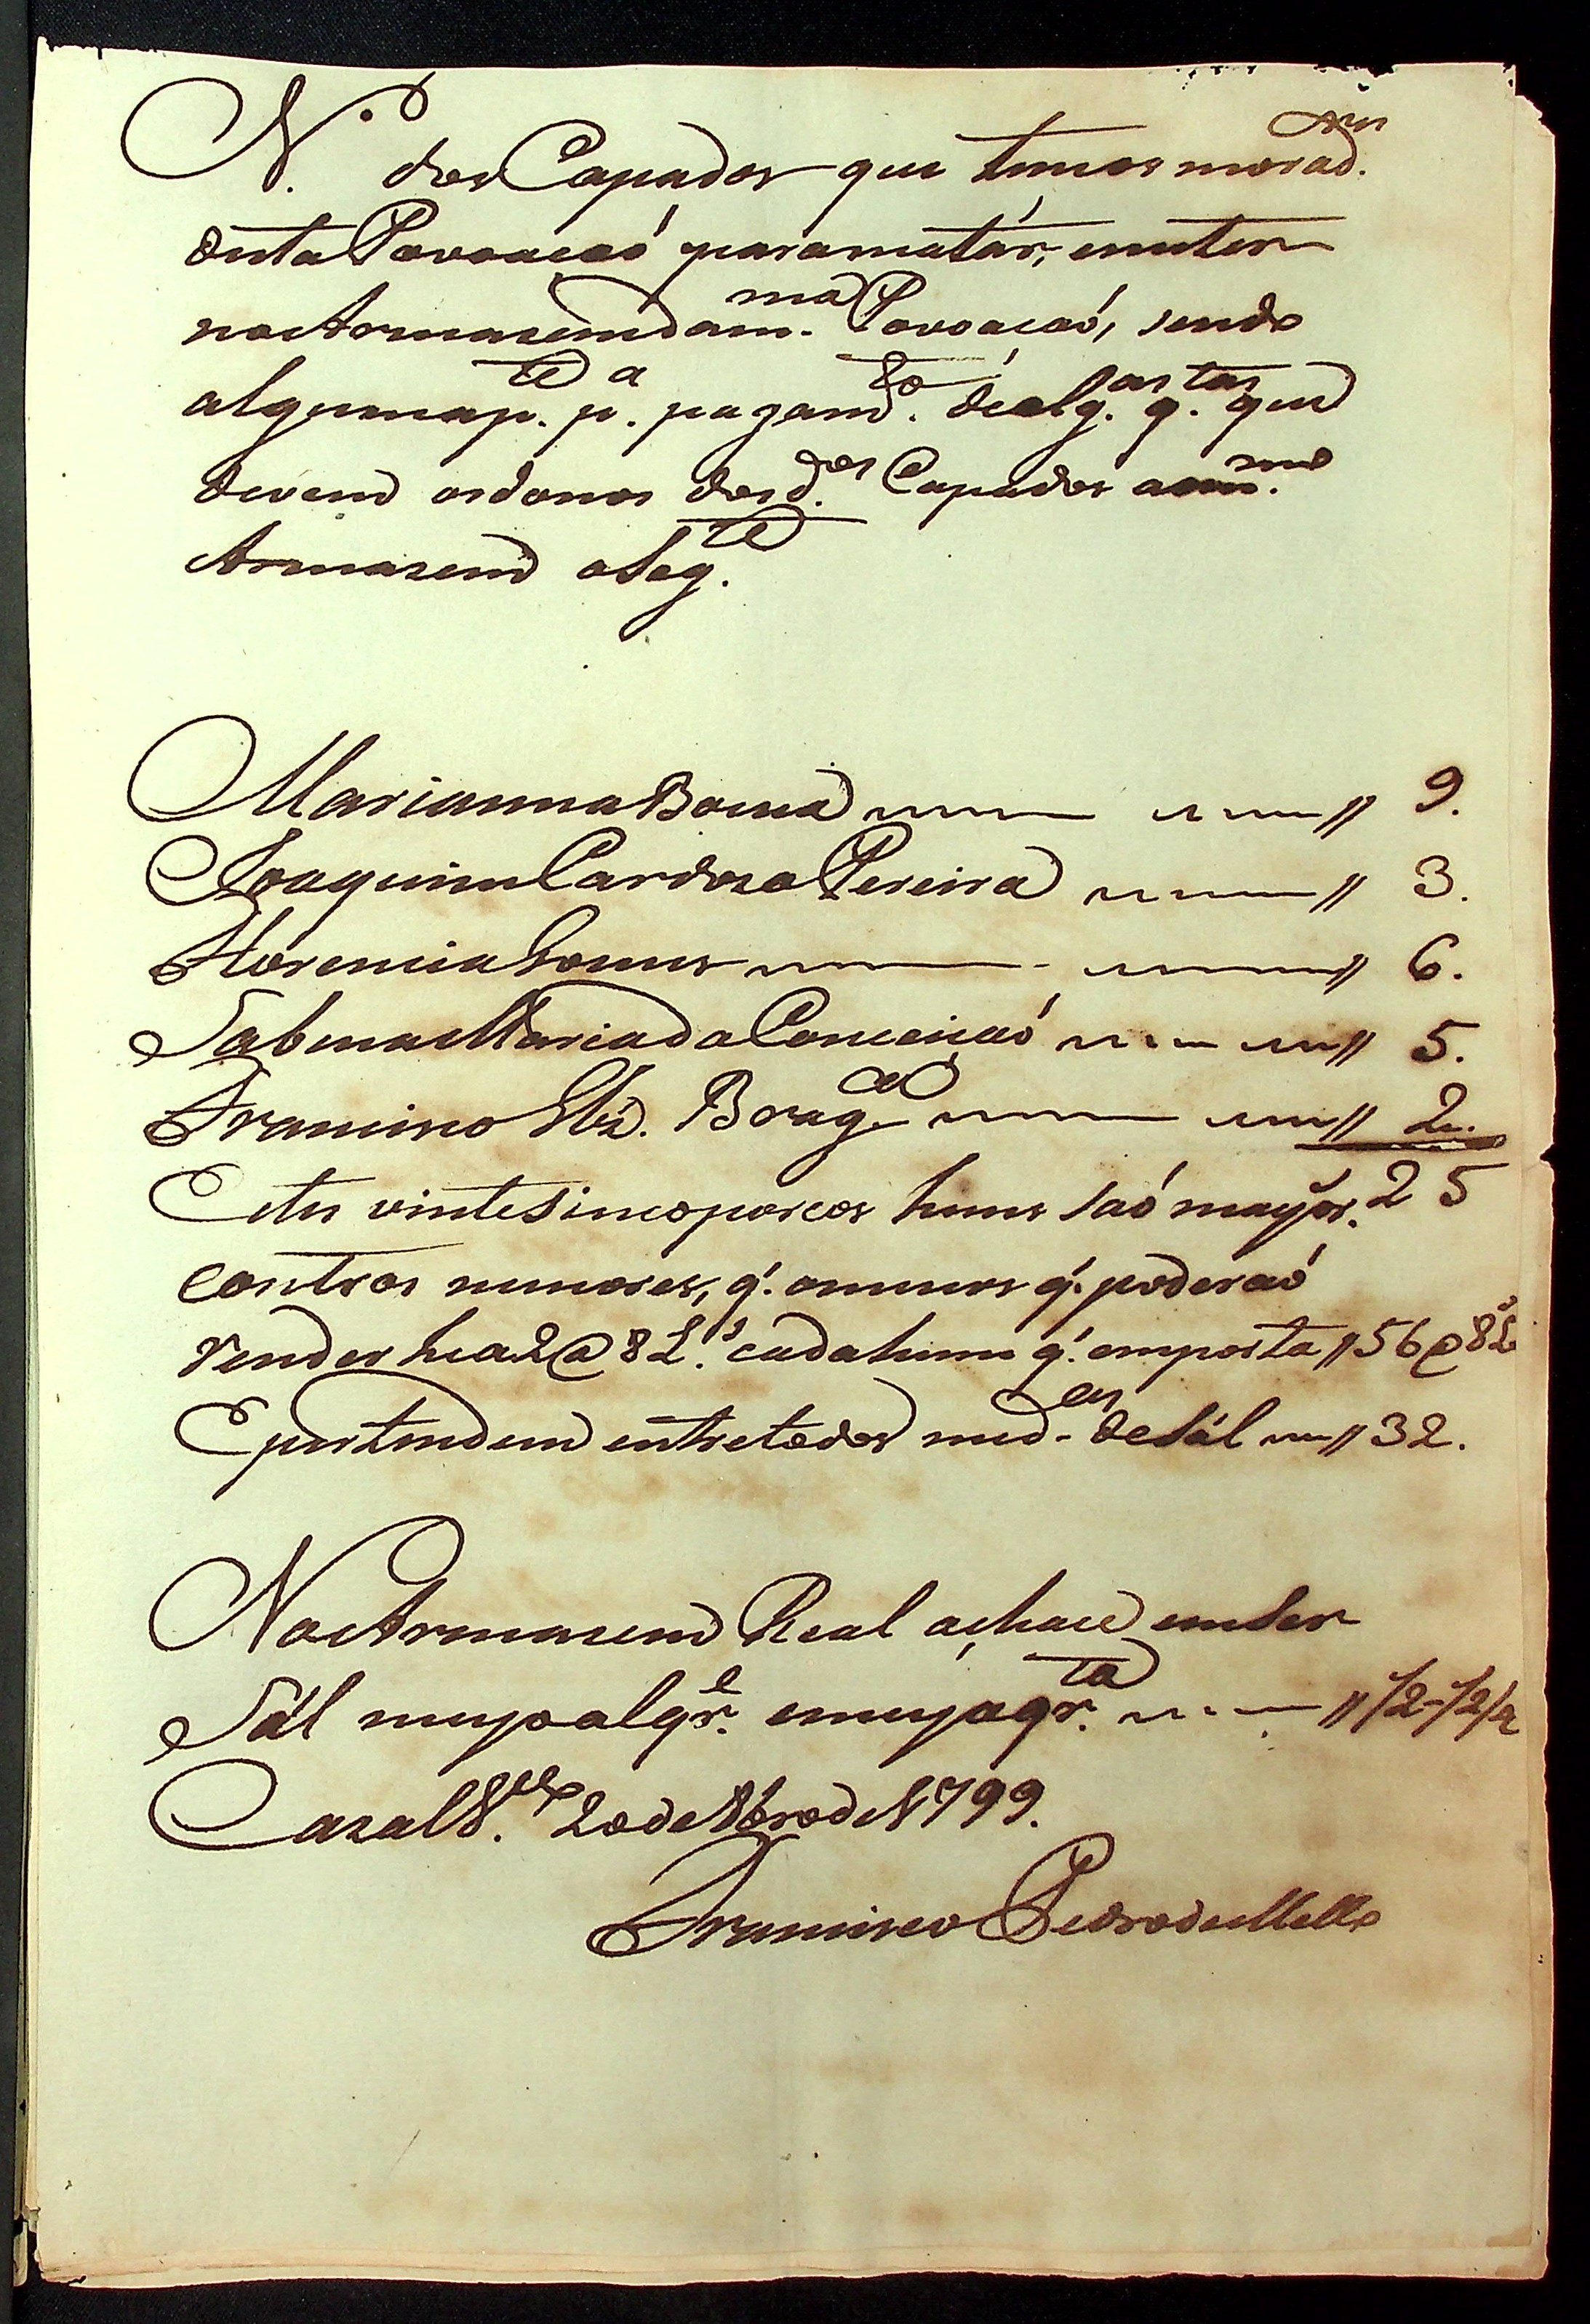 N.º dos Capados que temos morad.res
desta Povoacaó para matár, e meter
no Armasem da m.ma Povoacaó, sendo
alguma p.te p.a pagam.to de alg.as q.tas que
devem os donos dos d.os Capados a o m.mo
Armasem o seg.te
Marianna Borna 9.
Joaquim Cardozo Pereira 3.
Florencia Gomes 6.
Sabina Maria da Conceicaó 5.
Francisco Brag.co 2.
Estes vinte Sinco porcos huns saó mayor.s 25
e outros menores, q.' o menos q.' poderaó
render he a 2@ 8 L.s cada hum q.' emporta 56@8L
E pertendem entre todos med.as de sál 32.
No Armasem Real achace em ser
Sál meyo alqr.e e meya qr.ta 1/2-1/2/4
Cazal V.co 20 de 8bro de 1799.
Francisco Pedro de Mello